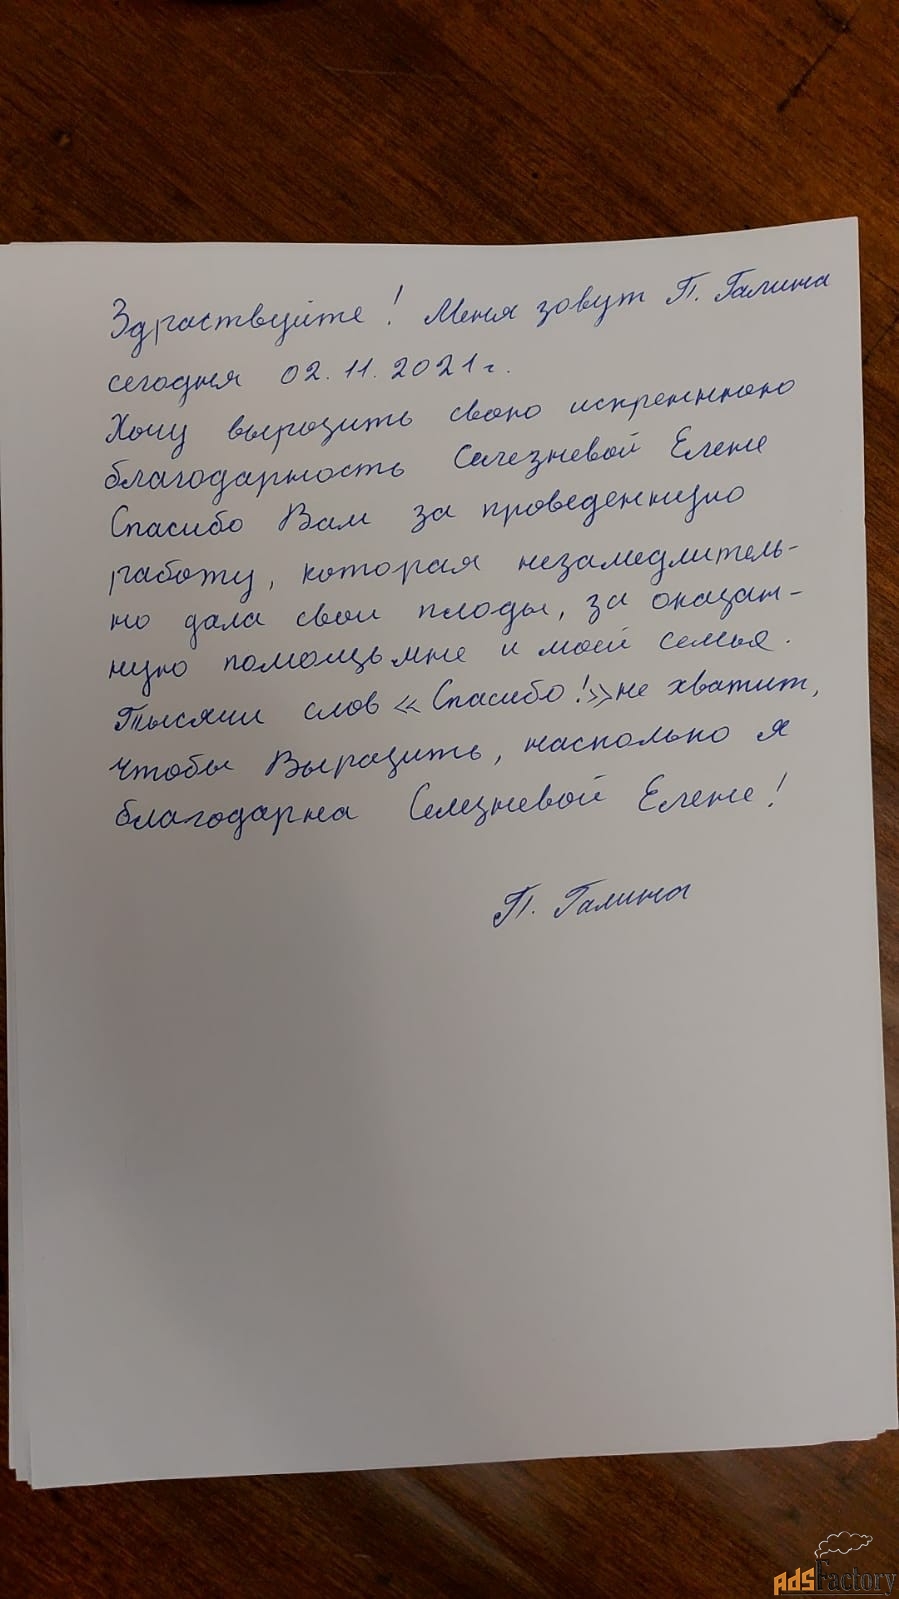 Здраствуйте! Меня зовут П. Галина
сегодня 02.11.2021г.
Хочу выразить свою искреннюю
благодарность Селезневой Елене
Спасибо Вам за проведенную
работу, которая незамедлитель-
но дала свои плоды, за оказан-
ную помощь мне и моей семья.
Тысячи слов «Спасибо!» не хватит,
чтобы Выразить, насколько я
благодарна Селезневой Елене!
П. Галина
AdsFactory